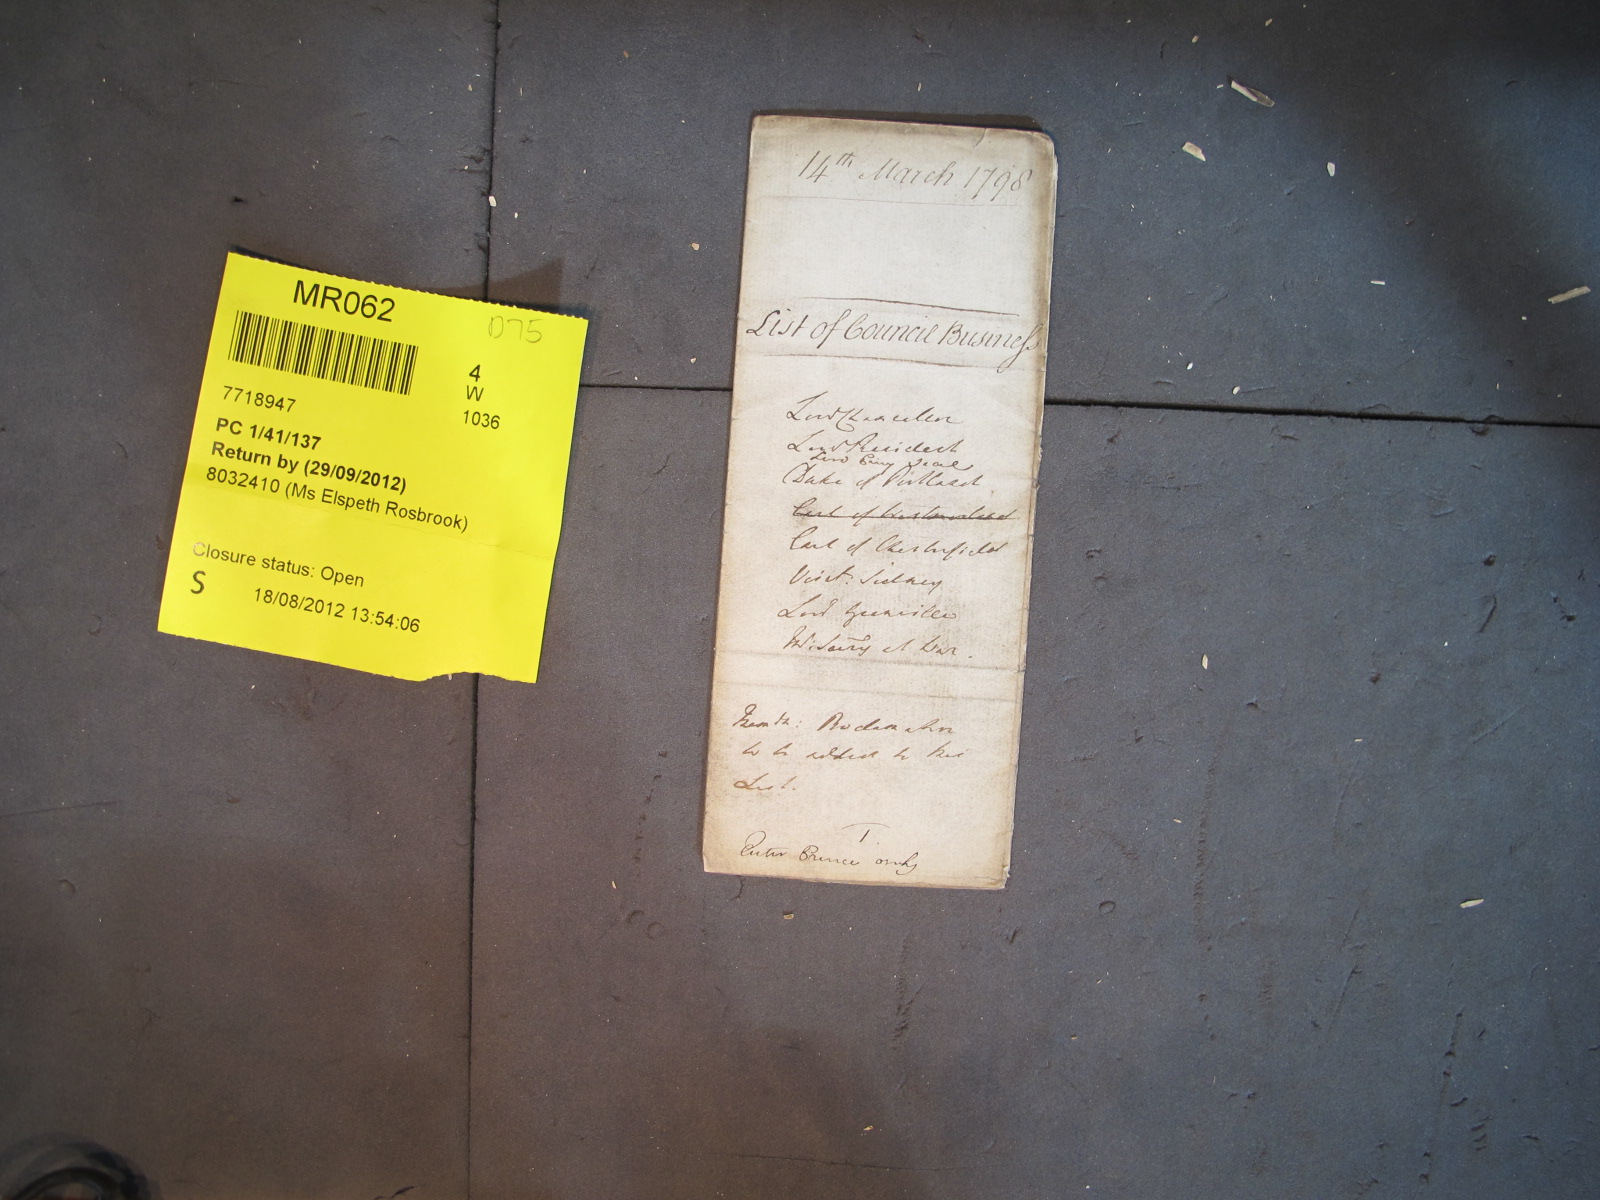 MR062
D75
4
W
1036
7718947
PC 1/41/137
Return by (29/09/2012)
8032410 (Ms Elspeth Rosbrook)
Closure status: Open
S
18/08/2012 13:54:06
14th March 1798
List of Council Business
Lord Chancellor
Lord President
Lord Privy Seal
Duke of Portland
Earl of Westmorland
Earl of Chesterfield
Visct. Sidney
Lord Grenville
at War.
Proclamation
to be added to this
List.
1
Enter only